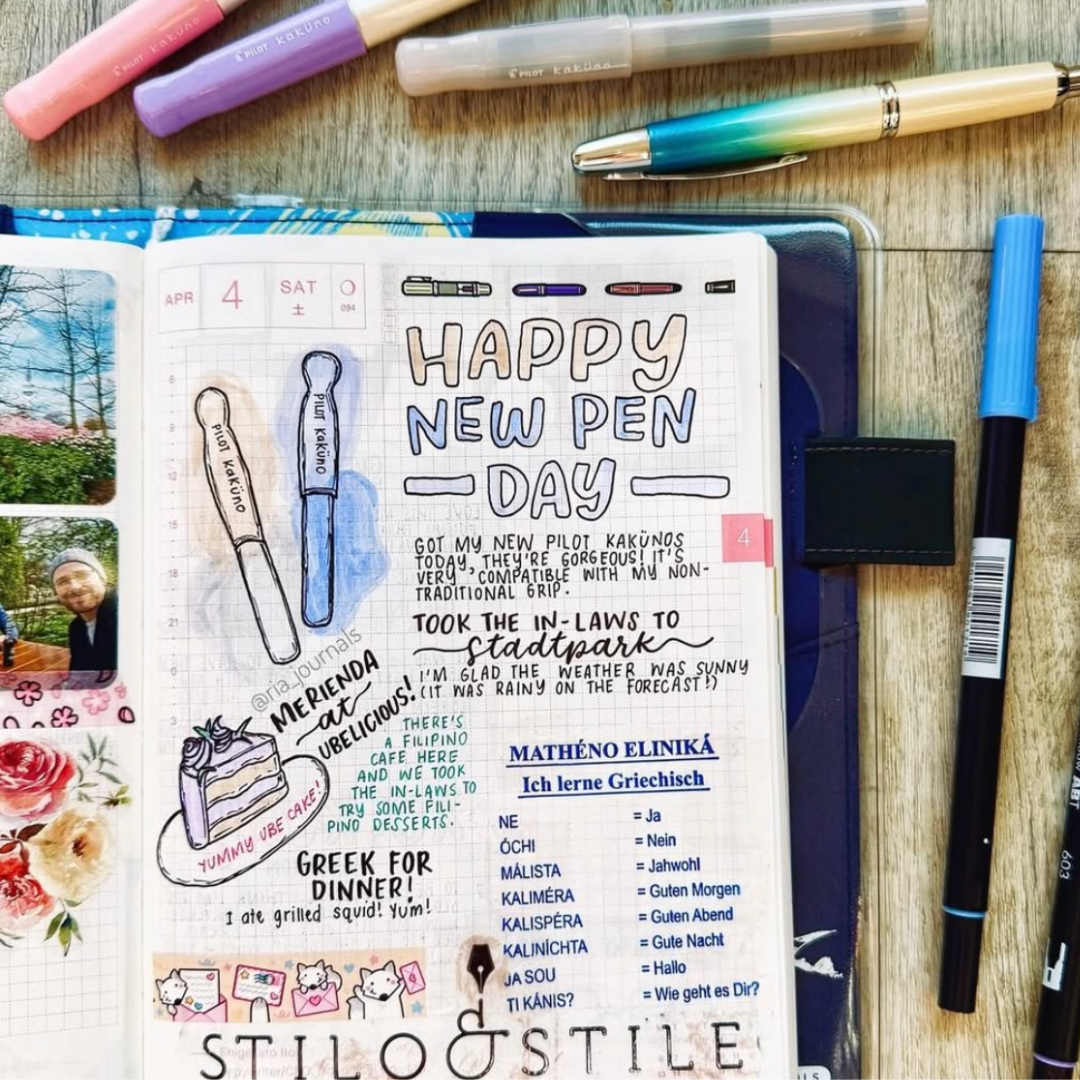 PILOT kaküno
PILOT kaküno
PILOT kaküno
APR 4 SAT
土
094
HAPPY
NEW PEN
DAY
PILOT KaKüNO
PILOT KaKüNO
6
9
12
15
18
21
0
3
4
GOT MY NEW PILOT KAKÜNOS
TODAY, THEY'RE GORGEOUS! IT'S
VERY COMPATIBLE WITH MY NON-
TRADITIONAL GRIP.
TOOK THE IN-LAWS TO
stadtpark
I'M GLAD THE WEATHER WAS SUNNY
(IT WAS RAINY ON THE FORECAST!)
@aria_journals
MERIENDA
at
UBELICIOUS!
THERE'S
A FILIPINO
CAFE HERE
AND WE TOOK
THE IN-LAWS TO
TRY SOME FILI-
PINO DESSERTS.
YUMMY UBE CAKE!
GREEK FOR
DINNER!
I ate grilled squid! Yum!
MATHÉNO ELINIKÁ
Ich lerne Griechisch
NE = Ja
ÓCHI = Nein
MÁLISTA = Jahwohl
KALIMÉRA = Guten Morgen
KALISPÉRA = Guten Abend
KALINÍCHTA = Gute Nacht
JA SOU = Hallo
TI KÁNIS? = Wie geht es Dir?
STILO&STILE
ABT
603